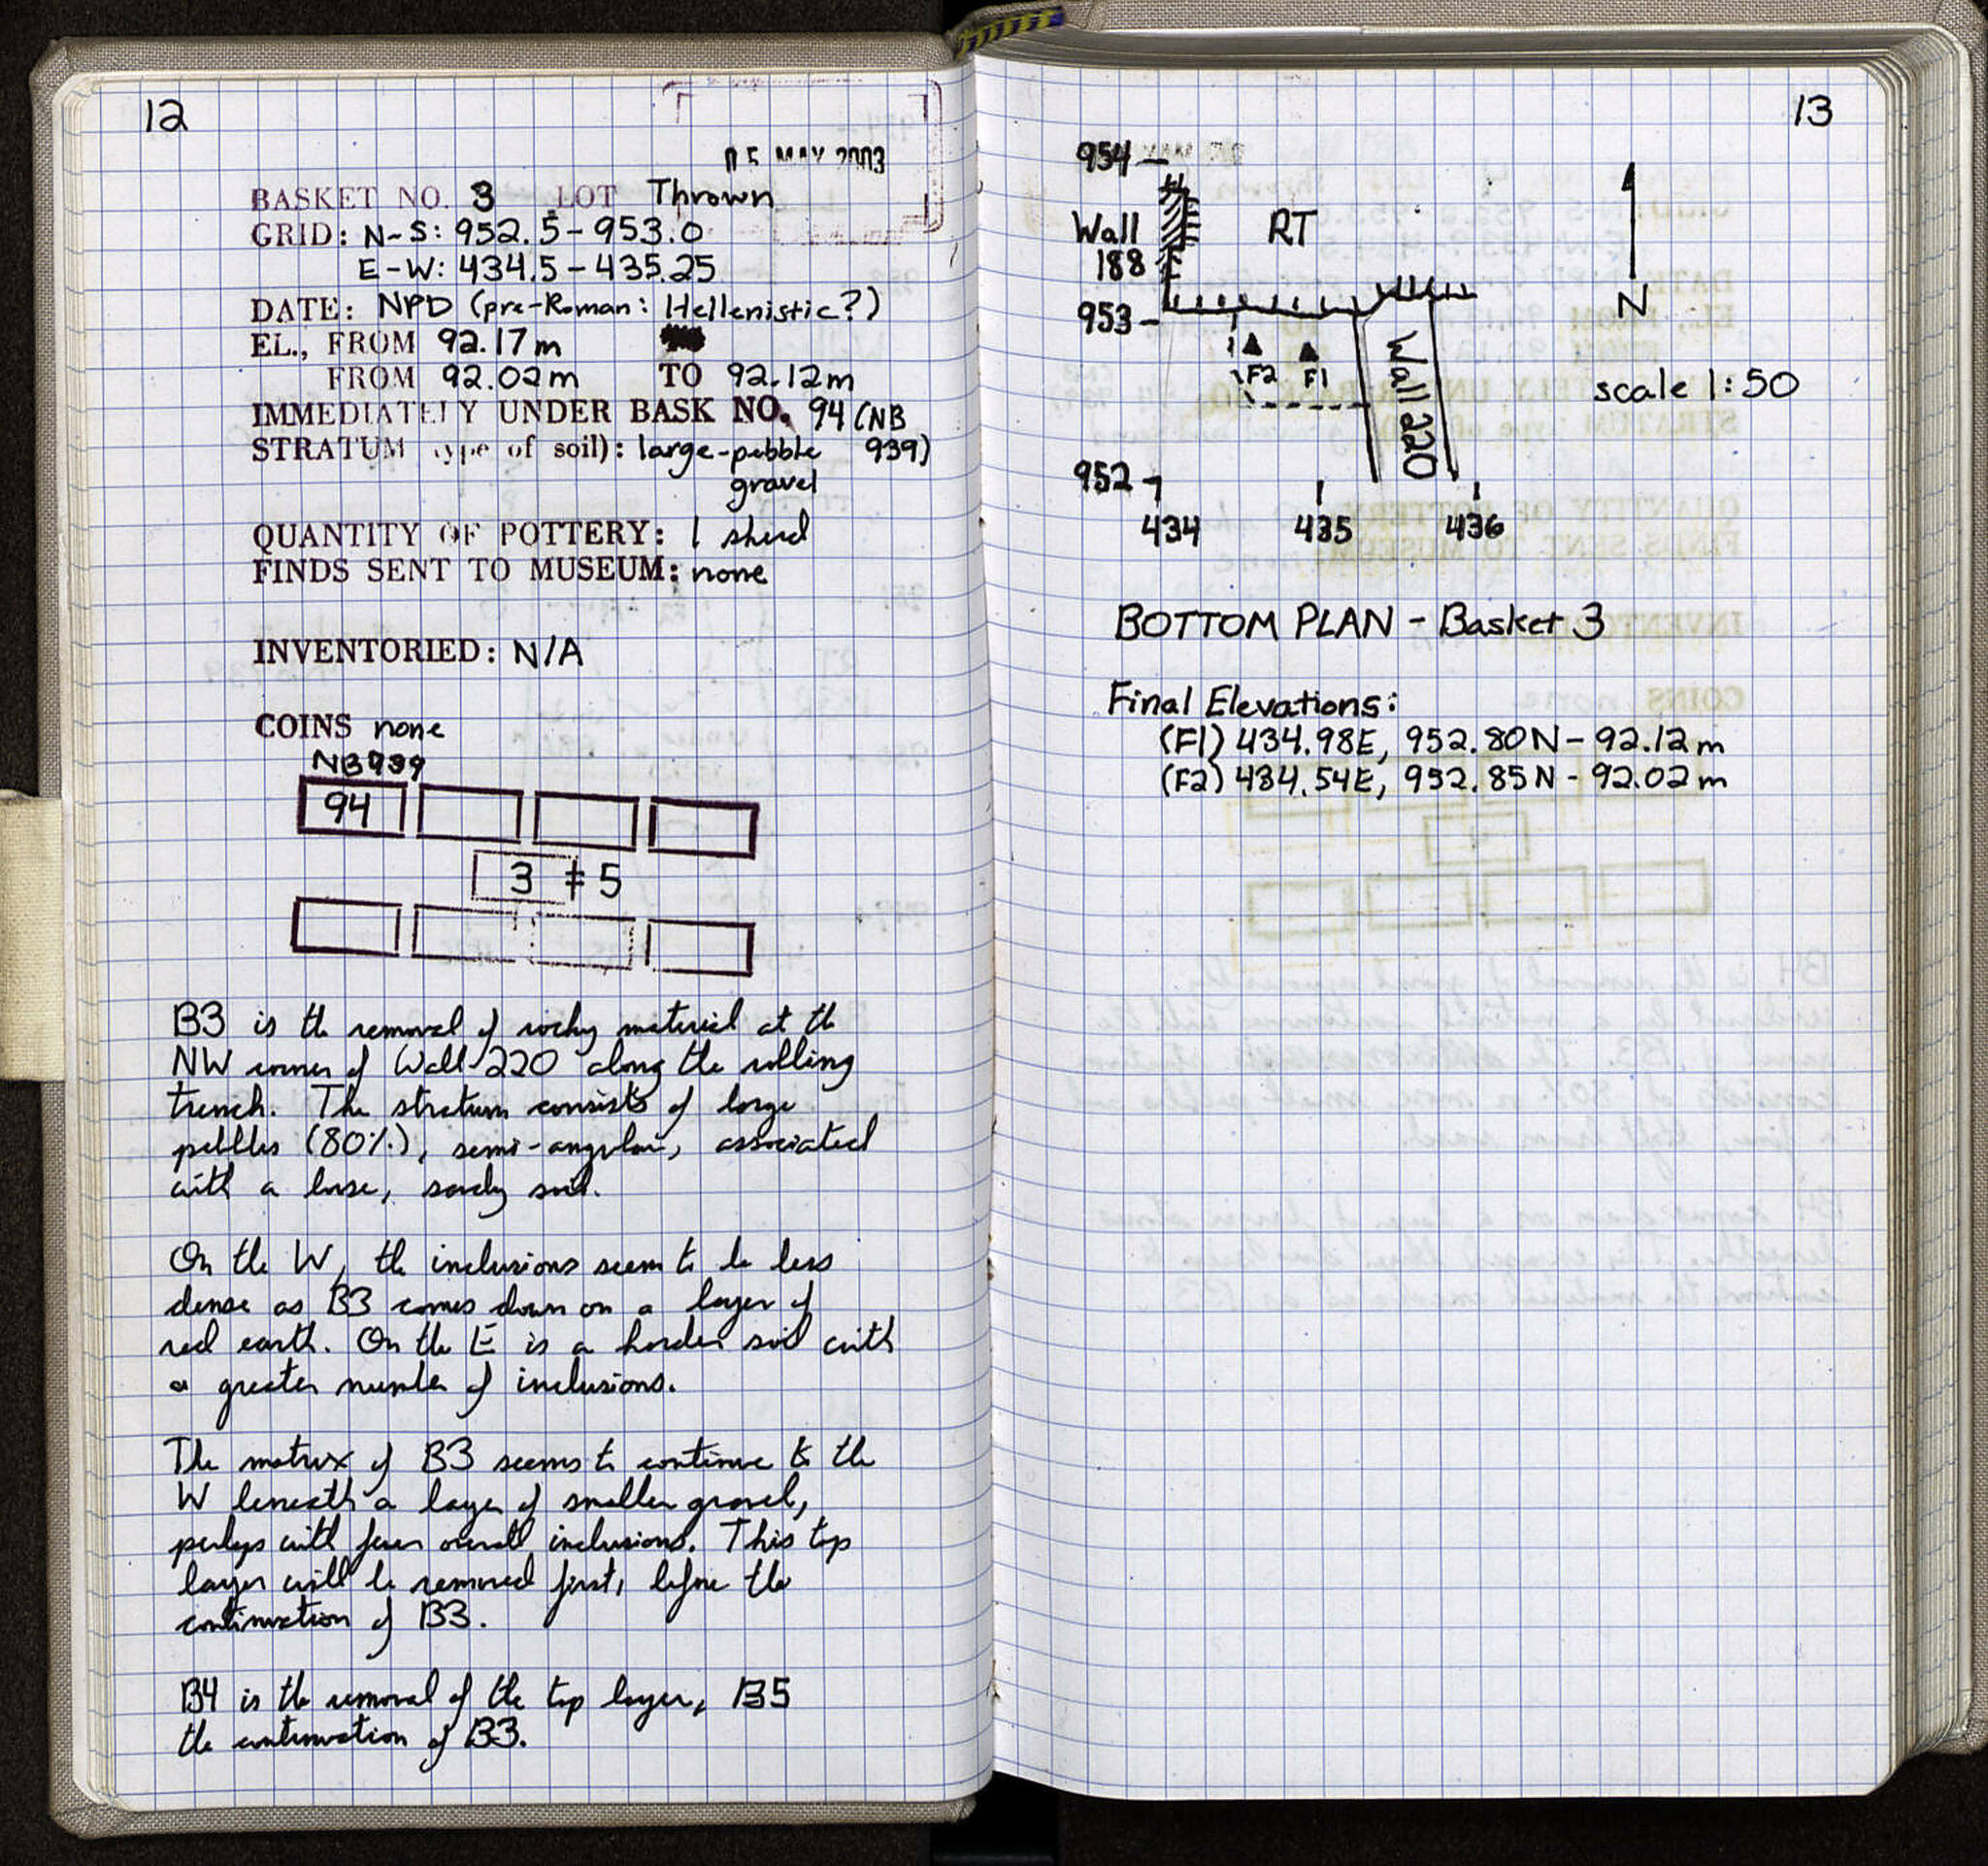 12
05 MAY 2003
BASKET NO. 3 LOT Thrown
GRID: N-S: 952.5-953.0
E-W: 434.5-435.25
DATE: NPD (pre-Roman: Hellenistic?)
EL., FROM 92.17m
FROM 92.02m TO 92.12m
IMMEDIATELY UNDER BASK NO. 94 (NB
STRATUM type of soil): large-pebble 939)
gravel
QUANTITY OF POTTERY: 1 sherd
FINDS SENT TO MUSEUM: none
INVENTORIED: N/A
COINS none
NB939
94
3 ‡ 5
B3 is the removal of rocky material at the
NW corner of Wall 220 along the rolling
trench. The stratum consists of large
pebbles (80%), semi-angular, associated
with a loose, sandy soil.
On the W, the inclusions seem to be less
dense as B3 comes down on a layer of
red earth. On the E is a harder soil with
a greater number of inclusions.
The matrix of B3 seems to continue to the
W beneath a layer of smaller gravel,
perhaps with fewer overall inclusions. This top
layer will be removed first, before the
continuation of B3.
B4 is the removal of the top layer, B5
the continuation of B3.
13
954
Wall
188
RT
953
F2 F1
Wall 220
N
scale 1:50
952
434 435 436
BOTTOM PLAN - Basket 3
Final Elevations:
(F1) 434.98E, 952.80N - 92.12m
(F2) 434.54E, 952.85N - 92.02m